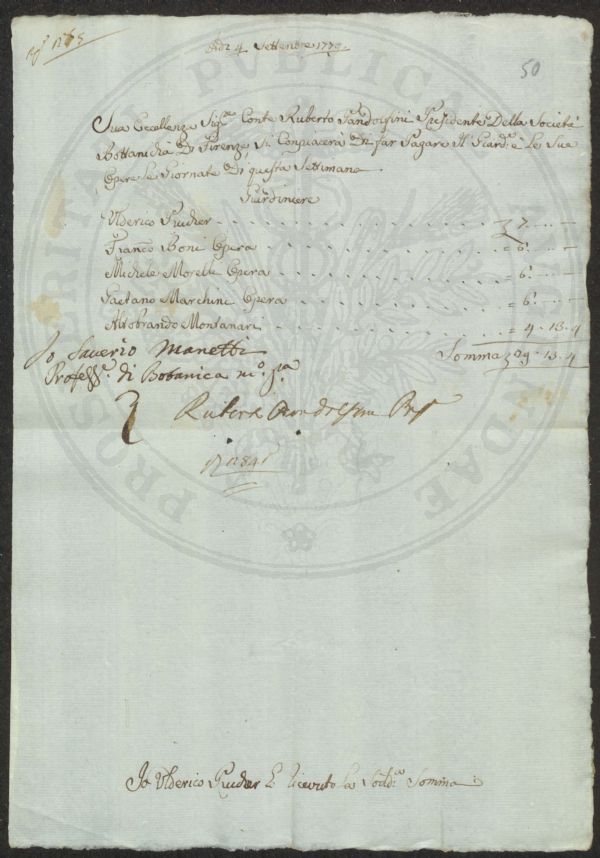 Adi 4 Settembre 1778
50
Sua Eccellenza Sig.re Conte Ruberto Pandolfini Presidente Della Società
Bottanicha Di Firenze, Si Conpiacerà Di far Pagare Il Giard.e e Le Sua
Opere le Giornate Di questa Settimana
Giardiniere
Ulderico 7
Franco Boni Opera = 6
Michele Morelli Opera = 6
Gaetano Marchini Opera = 6
Altobrando Montanari = 4 - 13 - 4
Somma 29 - 13 - 4
Io Saverio Manetti
Profess.e di Botanica m.o p.a
Ruberto Pandolfini
Io Ulderico ricevuto La Sodd.a Somma
PROSPERITATI PUBLICAE AUGENDAE